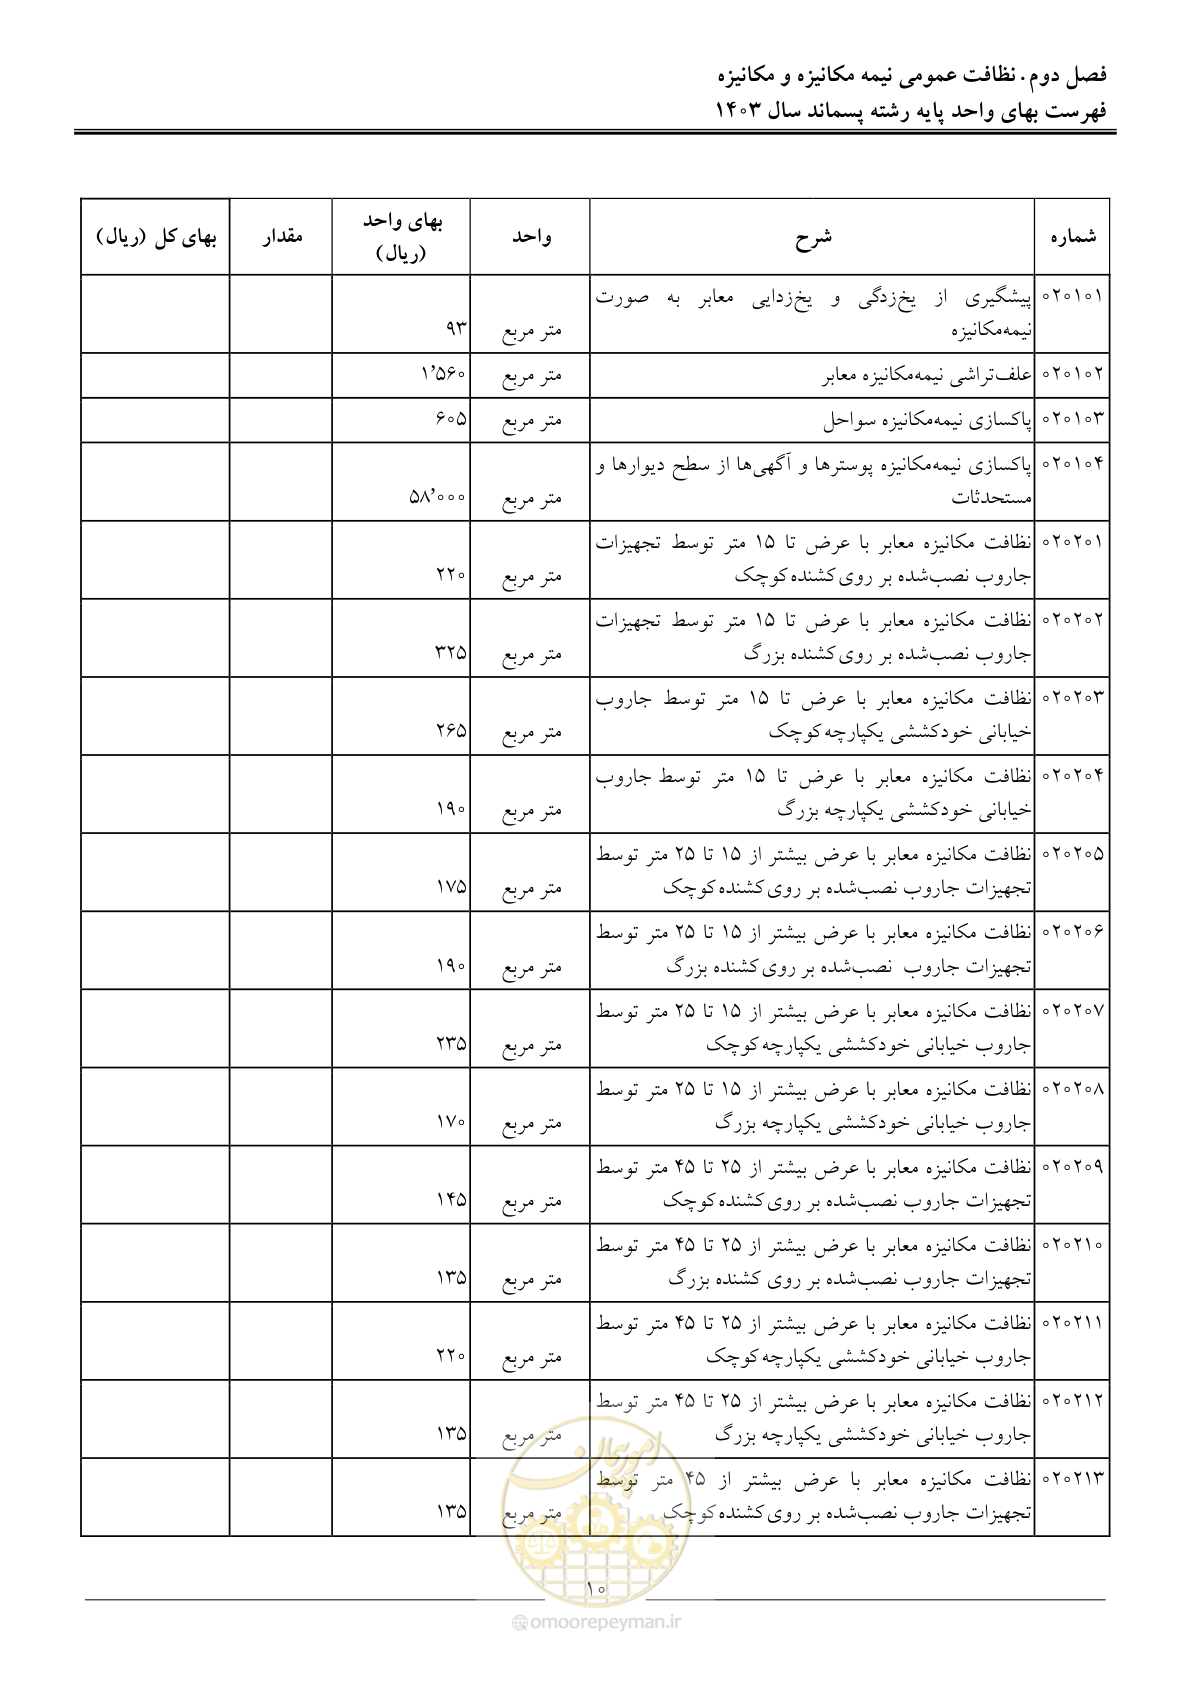 فصل دوم. نظافت عمومی نیمه مکانیزه و مکانیزه
فهرست بهای واحد پایه رشته پسماند سال ۱۴۰۳
شماره شرح واحد بهای واحد (ریال) مقدار بهای کل (ریال)
۰۲۰۱۰۱ پیشگیری از یخ‌زدگی و یخ‌زدایی معابر به صورت
نیمه‌مکانیزه متر مربع ۹۳
۰۲۰۱۰۲ علف‌تراشی نیمه‌مکانیزه معابر متر مربع ۱٬۵۶۰
۰۲۰۱۰۳ پاکسازی نیمه‌مکانیزه سواحل متر مربع ۶۰۵
۰۲۰۱۰۴ پاکسازی نیمه‌مکانیزه پوسترها و آگهی‌ها از سطح دیوارها و
مستحدثات متر مربع ۵۸٬۰۰۰
۰۲۰۲۰۱ نظافت مکانیزه معابر با عرض تا ۱۵ متر توسط تجهیزات
جاروب نصب‌شده بر روی کشنده کوچک متر مربع ۲۲۰
۰۲۰۲۰۲ نظافت مکانیزه معابر با عرض تا ۱۵ متر توسط تجهیزات
جاروب نصب‌شده بر روی کشنده بزرگ متر مربع ۳۲۵
۰۲۰۲۰۳ نظافت مکانیزه معابر با عرض تا ۱۵ متر توسط جاروب
خیابانی خودکششی یکپارچه کوچک متر مربع ۲۶۵
۰۲۰۲۰۴ نظافت مکانیزه معابر با عرض تا ۱۵ متر توسط جاروب
خیابانی خودکششی یکپارچه بزرگ متر مربع ۱۹۰
۰۲۰۲۰۵ نظافت مکانیزه معابر با عرض بیشتر از ۱۵ تا ۲۵ متر توسط
تجهیزات جاروب نصب‌شده بر روی کشنده کوچک متر مربع ۱۷۵
۰۲۰۲۰۶ نظافت مکانیزه معابر با عرض بیشتر از ۱۵ تا ۲۵ متر توسط
تجهیزات جاروب نصب‌شده بر روی کشنده بزرگ متر مربع ۱۹۰
۰۲۰۲۰۷ نظافت مکانیزه معابر با عرض بیشتر از ۱۵ تا ۲۵ متر توسط
جاروب خیابانی خودکششی یکپارچه کوچک متر مربع ۲۳۵
۰۲۰۲۰۸ نظافت مکانیزه معابر با عرض بیشتر از ۱۵ تا ۲۵ متر توسط
جاروب خیابانی خودکششی یکپارچه بزرگ متر مربع ۱۷۰
۰۲۰۲۰۹ نظافت مکانیزه معابر با عرض بیشتر از ۲۵ تا ۴۵ متر توسط
تجهیزات جاروب نصب‌شده بر روی کشنده کوچک متر مربع ۱۴۵
۰۲۰۲۱۰ نظافت مکانیزه معابر با عرض بیشتر از ۲۵ تا ۴۵ متر توسط
تجهیزات جاروب نصب‌شده بر روی کشنده بزرگ متر مربع ۱۳۵
۰۲۰۲۱۱ نظافت مکانیزه معابر با عرض بیشتر از ۲۵ تا ۴۵ متر توسط
جاروب خیابانی خودکششی یکپارچه کوچک متر مربع ۲۲۰
۰۲۰۲۱۲ نظافت مکانیزه معابر با عرض بیشتر از ۲۵ تا ۴۵ متر توسط
جاروب خیابانی خودکششی یکپارچه بزرگ متر مربع ۱۳۵
۰۲۰۲۱۳ نظافت مکانیزه معابر با عرض بیشتر از ۴۵ متر توسط
تجهیزات جاروب نصب‌شده بر روی کشنده کوچک متر مربع ۱۳۵
امور پیمان
۱۰
omoorepeyman.ir